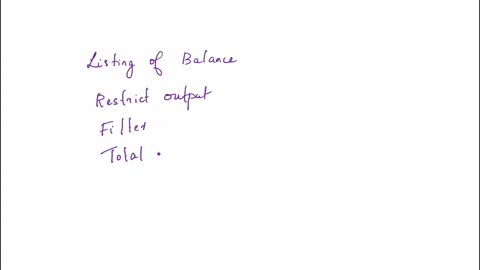 Listing of Balance
Restrict output
Filler
Total